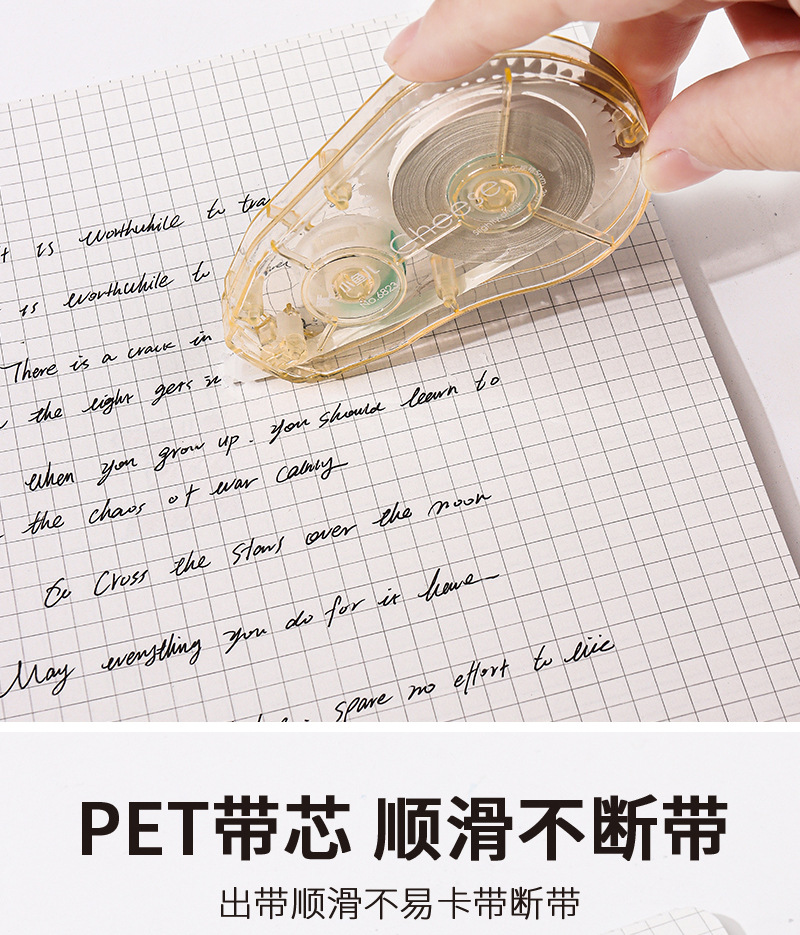 t is worthwhile to tra
is worthwhile to
There is a crack in
the light gets in
when you grow up. you should learn to
the chaos of war calmly
to Cross the stars over the moon
May everything you do for it have
spare no effort to
Cheese
No.6823
PET带芯 顺滑不断带
出带顺滑不易卡带断带